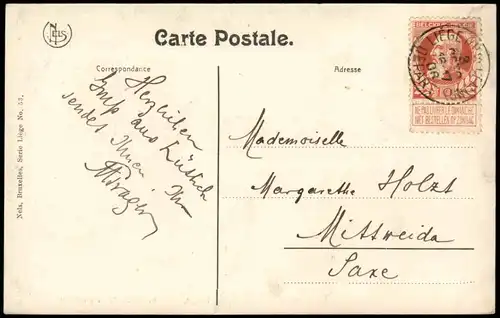 NELS
Carte Postale.
Correspondance
Adresse
Herzlichen
Gruß aus Lüttich
sendet Ihnen Ihr
Mademoiselle
Margarethe Holzt
Mittweida
Saxe
Nels, Bruxelles, Serie Liège No. 52.
LIÈGE
NE PAS LIVRER LE DIMANCHE
NIET BESTELLEN OP ZONDAG